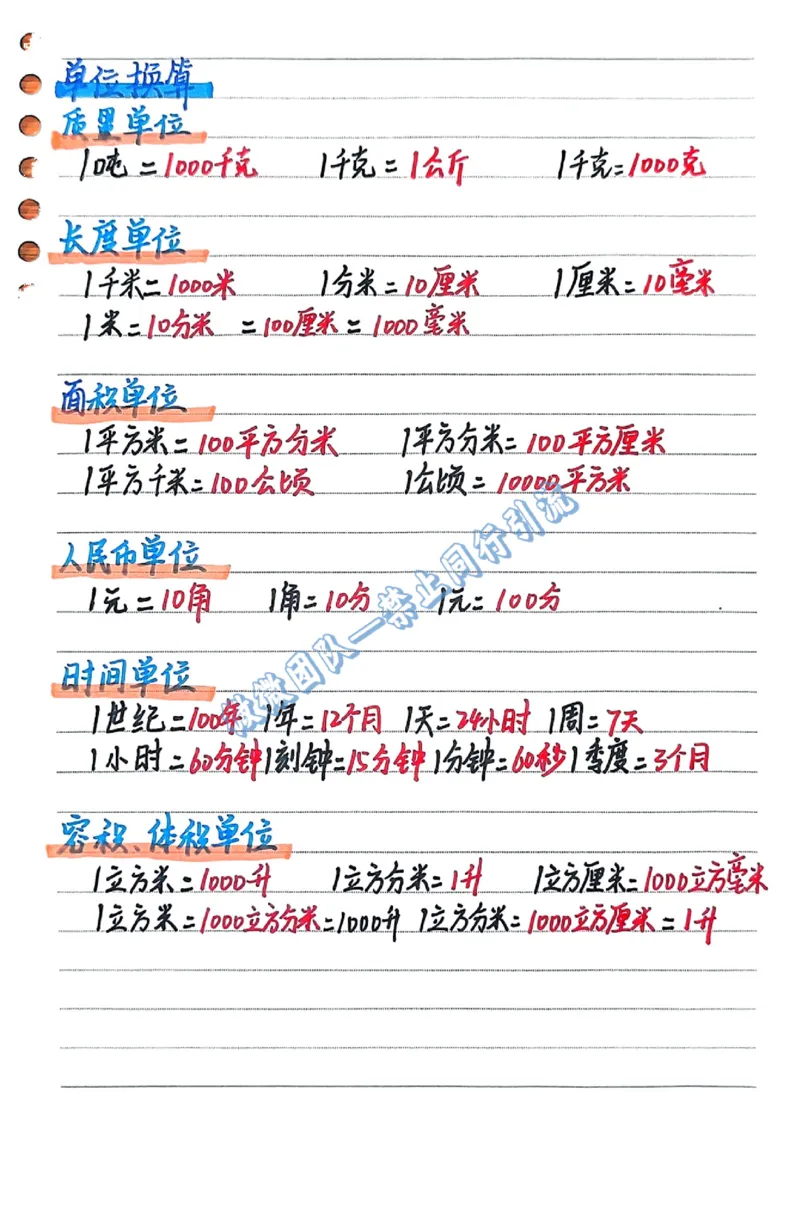 单位换算
质量单位
1吨=1000千克 1千克=1公斤 1千克=1000克
长度单位
1千米=1000米 1分米=10厘米 1厘米=10毫米
1米=10分米 =100厘米=1000毫米
面积单位
1平方米=100平方分米 1平方分米=100平方厘米
1平方千米=100公顷 1公顷=10000平方米
人民币单位
1元=10角 1角=10分 1元=100分
时间单位
1世纪=100年 1年=12个月 1天=24小时 1周=7天
1小时=60分钟 1刻钟=15分钟 1分钟=60秒 1季度=3个月
容积、体积单位
1立方米=1000升 1立方分米=1升 1立方厘米=1000立方毫米
1立方米=1000立方分米=1000升 1立方分米=1000立方厘米=1升
微微团队—禁止同行引流